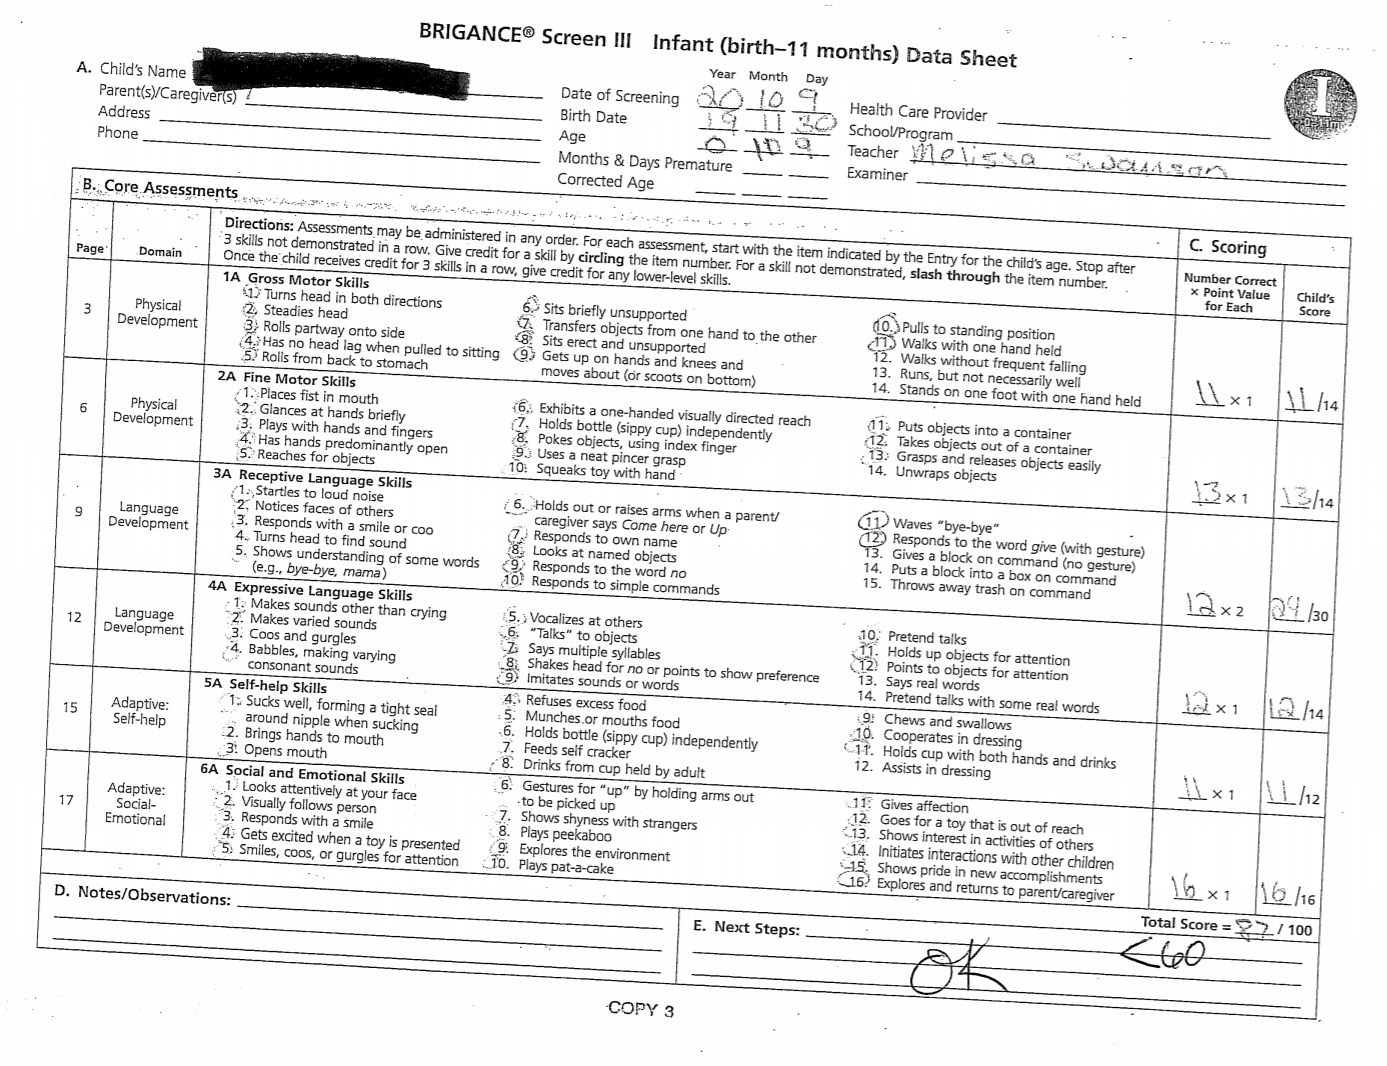 BRIGANCE® Screen III Infant (birth–11 months) Data Sheet
A. Child's Name
Parent(s)/Caregiver(s)
Address
Phone
Year Month Day
Date of Screening 20 10 9
Birth Date 19 11 30
Age 0 10 9
Months & Days Premature
Corrected Age
Health Care Provider
School/Program
Teacher Melissa Swanson
Examiner
I
0–11m
B. Core Assessments
Page
Domain
Directions: Assessments may be administered in any order. For each assessment, start with the item indicated by the Entry for the child's age. Stop after
3 skills not demonstrated in a row. Give credit for a skill by circling the item number. For a skill not demonstrated, slash through the item number.
Once the child receives credit for 3 skills in a row, give credit for any lower-level skills.
C. Scoring
Number Correct
× Point Value
for Each
Child's
Score
3
Physical
Development
1A Gross Motor Skills
1. Turns head in both directions
2. Steadies head
3. Rolls partway onto side
4. Has no head lag when pulled to sitting
5. Rolls from back to stomach
6. Sits briefly unsupported
7. Transfers objects from one hand to the other
8. Sits erect and unsupported
9. Gets up on hands and knees and
moves about (or scoots on bottom)
10. Pulls to standing position
11. Walks with one hand held
12. Walks without frequent falling
13. Runs, but not necessarily well
14. Stands on one foot with one hand held
11 × 1
11 /14
6
Physical
Development
2A Fine Motor Skills
1. Places fist in mouth
2. Glances at hands briefly
3. Plays with hands and fingers
4. Has hands predominantly open
5. Reaches for objects
6. Exhibits a one-handed visually directed reach
7. Holds bottle (sippy cup) independently
8. Pokes objects, using index finger
9. Uses a neat pincer grasp
10. Squeaks toy with hand
11. Puts objects into a container
12. Takes objects out of a container
13. Grasps and releases objects easily
14. Unwraps objects
13 × 1
13 /14
9
Language
Development
3A Receptive Language Skills
1. Startles to loud noise
2. Notices faces of others
3. Responds with a smile or coo
4. Turns head to find sound
5. Shows understanding of some words
(e.g., bye-bye, mama)
6. Holds out or raises arms when a parent/
caregiver says Come here or Up
7. Responds to own name
8. Looks at named objects
9. Responds to the word no
10. Responds to simple commands
11. Waves "bye-bye"
12. Responds to the word give (with gesture)
13. Gives a block on command (no gesture)
14. Puts a block into a box on command
15. Throws away trash on command
12 × 2
24 /30
12
Language
Development
4A Expressive Language Skills
1. Makes sounds other than crying
2. Makes varied sounds
3. Coos and gurgles
4. Babbles, making varying
consonant sounds
5. Vocalizes at others
6. "Talks" to objects
7. Says multiple syllables
8. Shakes head for no or points to show preference
9. Imitates sounds or words
10. Pretend talks
11. Holds up objects for attention
12. Points to objects for attention
13. Says real words
14. Pretend talks with some real words
12 × 1
12 /14
15
Adaptive:
Self-help
5A Self-help Skills
1. Sucks well, forming a tight seal
around nipple when sucking
2. Brings hands to mouth
3. Opens mouth
4. Refuses excess food
5. Munches or mouths food
6. Holds bottle (sippy cup) independently
7. Feeds self cracker
8. Drinks from cup held by adult
9. Chews and swallows
10. Cooperates in dressing
11. Holds cup with both hands and drinks
12. Assists in dressing
11 × 1
11 /12
17
Adaptive:
Social-
Emotional
6A Social and Emotional Skills
1. Looks attentively at your face
2. Visually follows person
3. Responds with a smile
4. Gets excited when a toy is presented
5. Smiles, coos, or gurgles for attention
6. Gestures for "up" by holding arms out
to be picked up
7. Shows shyness with strangers
8. Plays peekaboo
9. Explores the environment
10. Plays pat-a-cake
11. Gives affection
12. Goes for a toy that is out of reach
13. Shows interest in activities of others
14. Initiates interactions with other children
15. Shows pride in new accomplishments
16. Explores and returns to parent/caregiver
16 × 1
16 /16
D. Notes/Observations:
E. Next Steps:
Total Score = 87 / 100
OK
<60
COPY 3